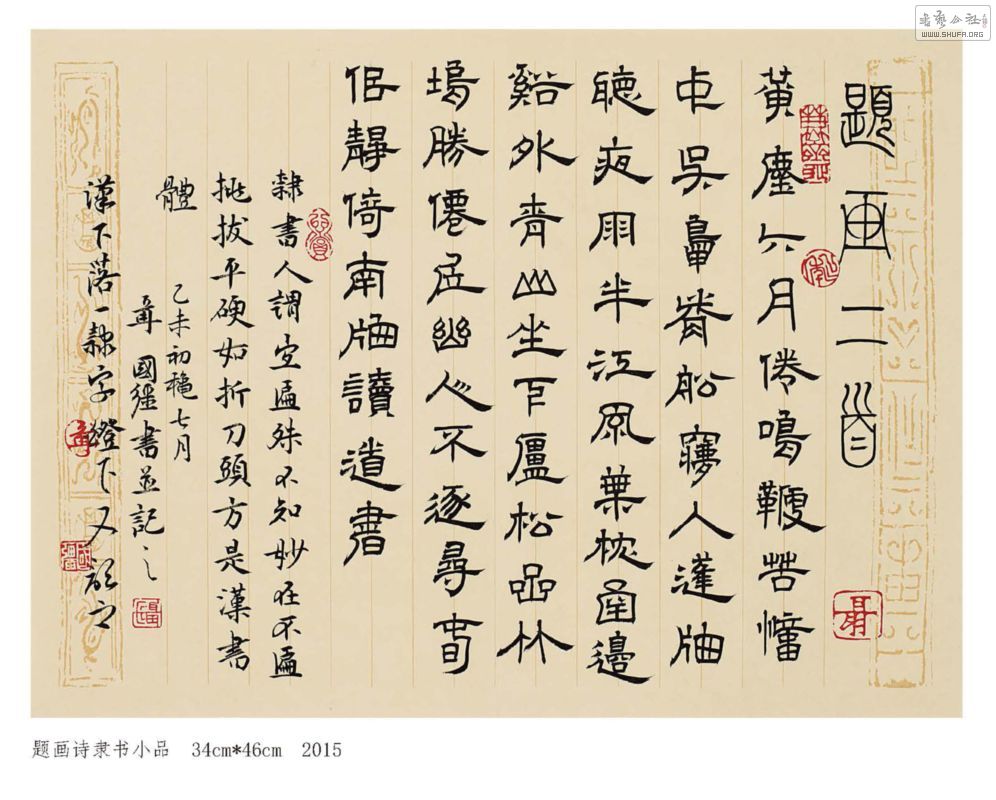 題画二首
黃塵六月倦鳴鞭苦憶
中吳罨畫船夢人蓮牖
聽夜雨半江風葉枕函邊
谿外青山坐下松嵒竹
塢勝僊居幽人不逐尋常
侶靜倚南牖讀道書
隸書人謂宜匾殊不知妙在不匾
挑拔平硬如折刀頭方是漢書
體
乙未初穐七月
聶國疆書並記之
漢下落一隸字燈下又記之
題画诗隶书小品 34cm*46cm 2015
書藝公社
WWW.SHUFA.ORG